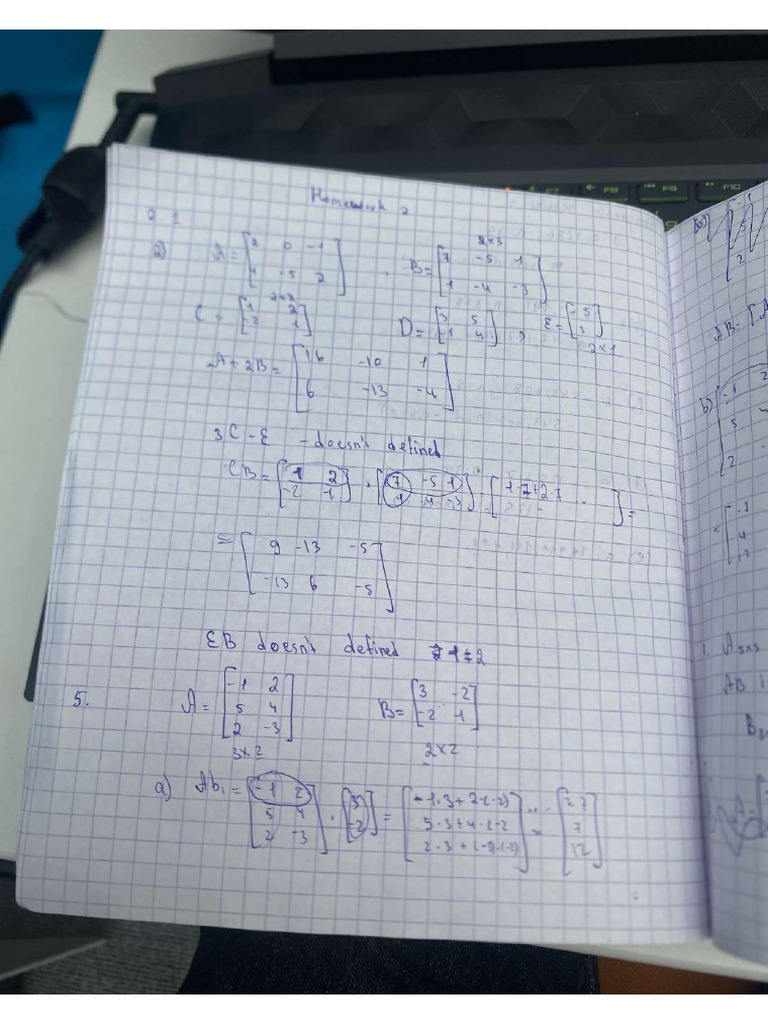 Homework 2
2 1
2) A = [2 0 -1; 4 -5 2], B = [7 -5 1; 1 -4 -3] 2×3
C = [1 2; -2 1] 2×2 D = [3 5; -1 4], E = [-5; 3] 2×1
A + 2B = [16 -10 1; 6 -13 -4]
3C - E - doesn't defined
CB = [1 2; -2 1] · [7 -5 1; 1 -4 -3] = [1·7+2·7 . ] =
= [9 -13 -5; -13 6 -5]
EB doesn't defined 1 ≠ 2
5. A = [-1 2; 5 4; 2 -3] 3×2 B = [3 -2; -2 1] 2×2
a) Ab₁ = [-1 2; 5 4; 2 -3] · [3; -2] = [-1·3+2·(-2); 5·3+4·(-2; 2·3+(-3)·(-2)] = [-7; 7; 12]
F7 F8 F9 F10
b)
AB = [A
1. A
AB i
B